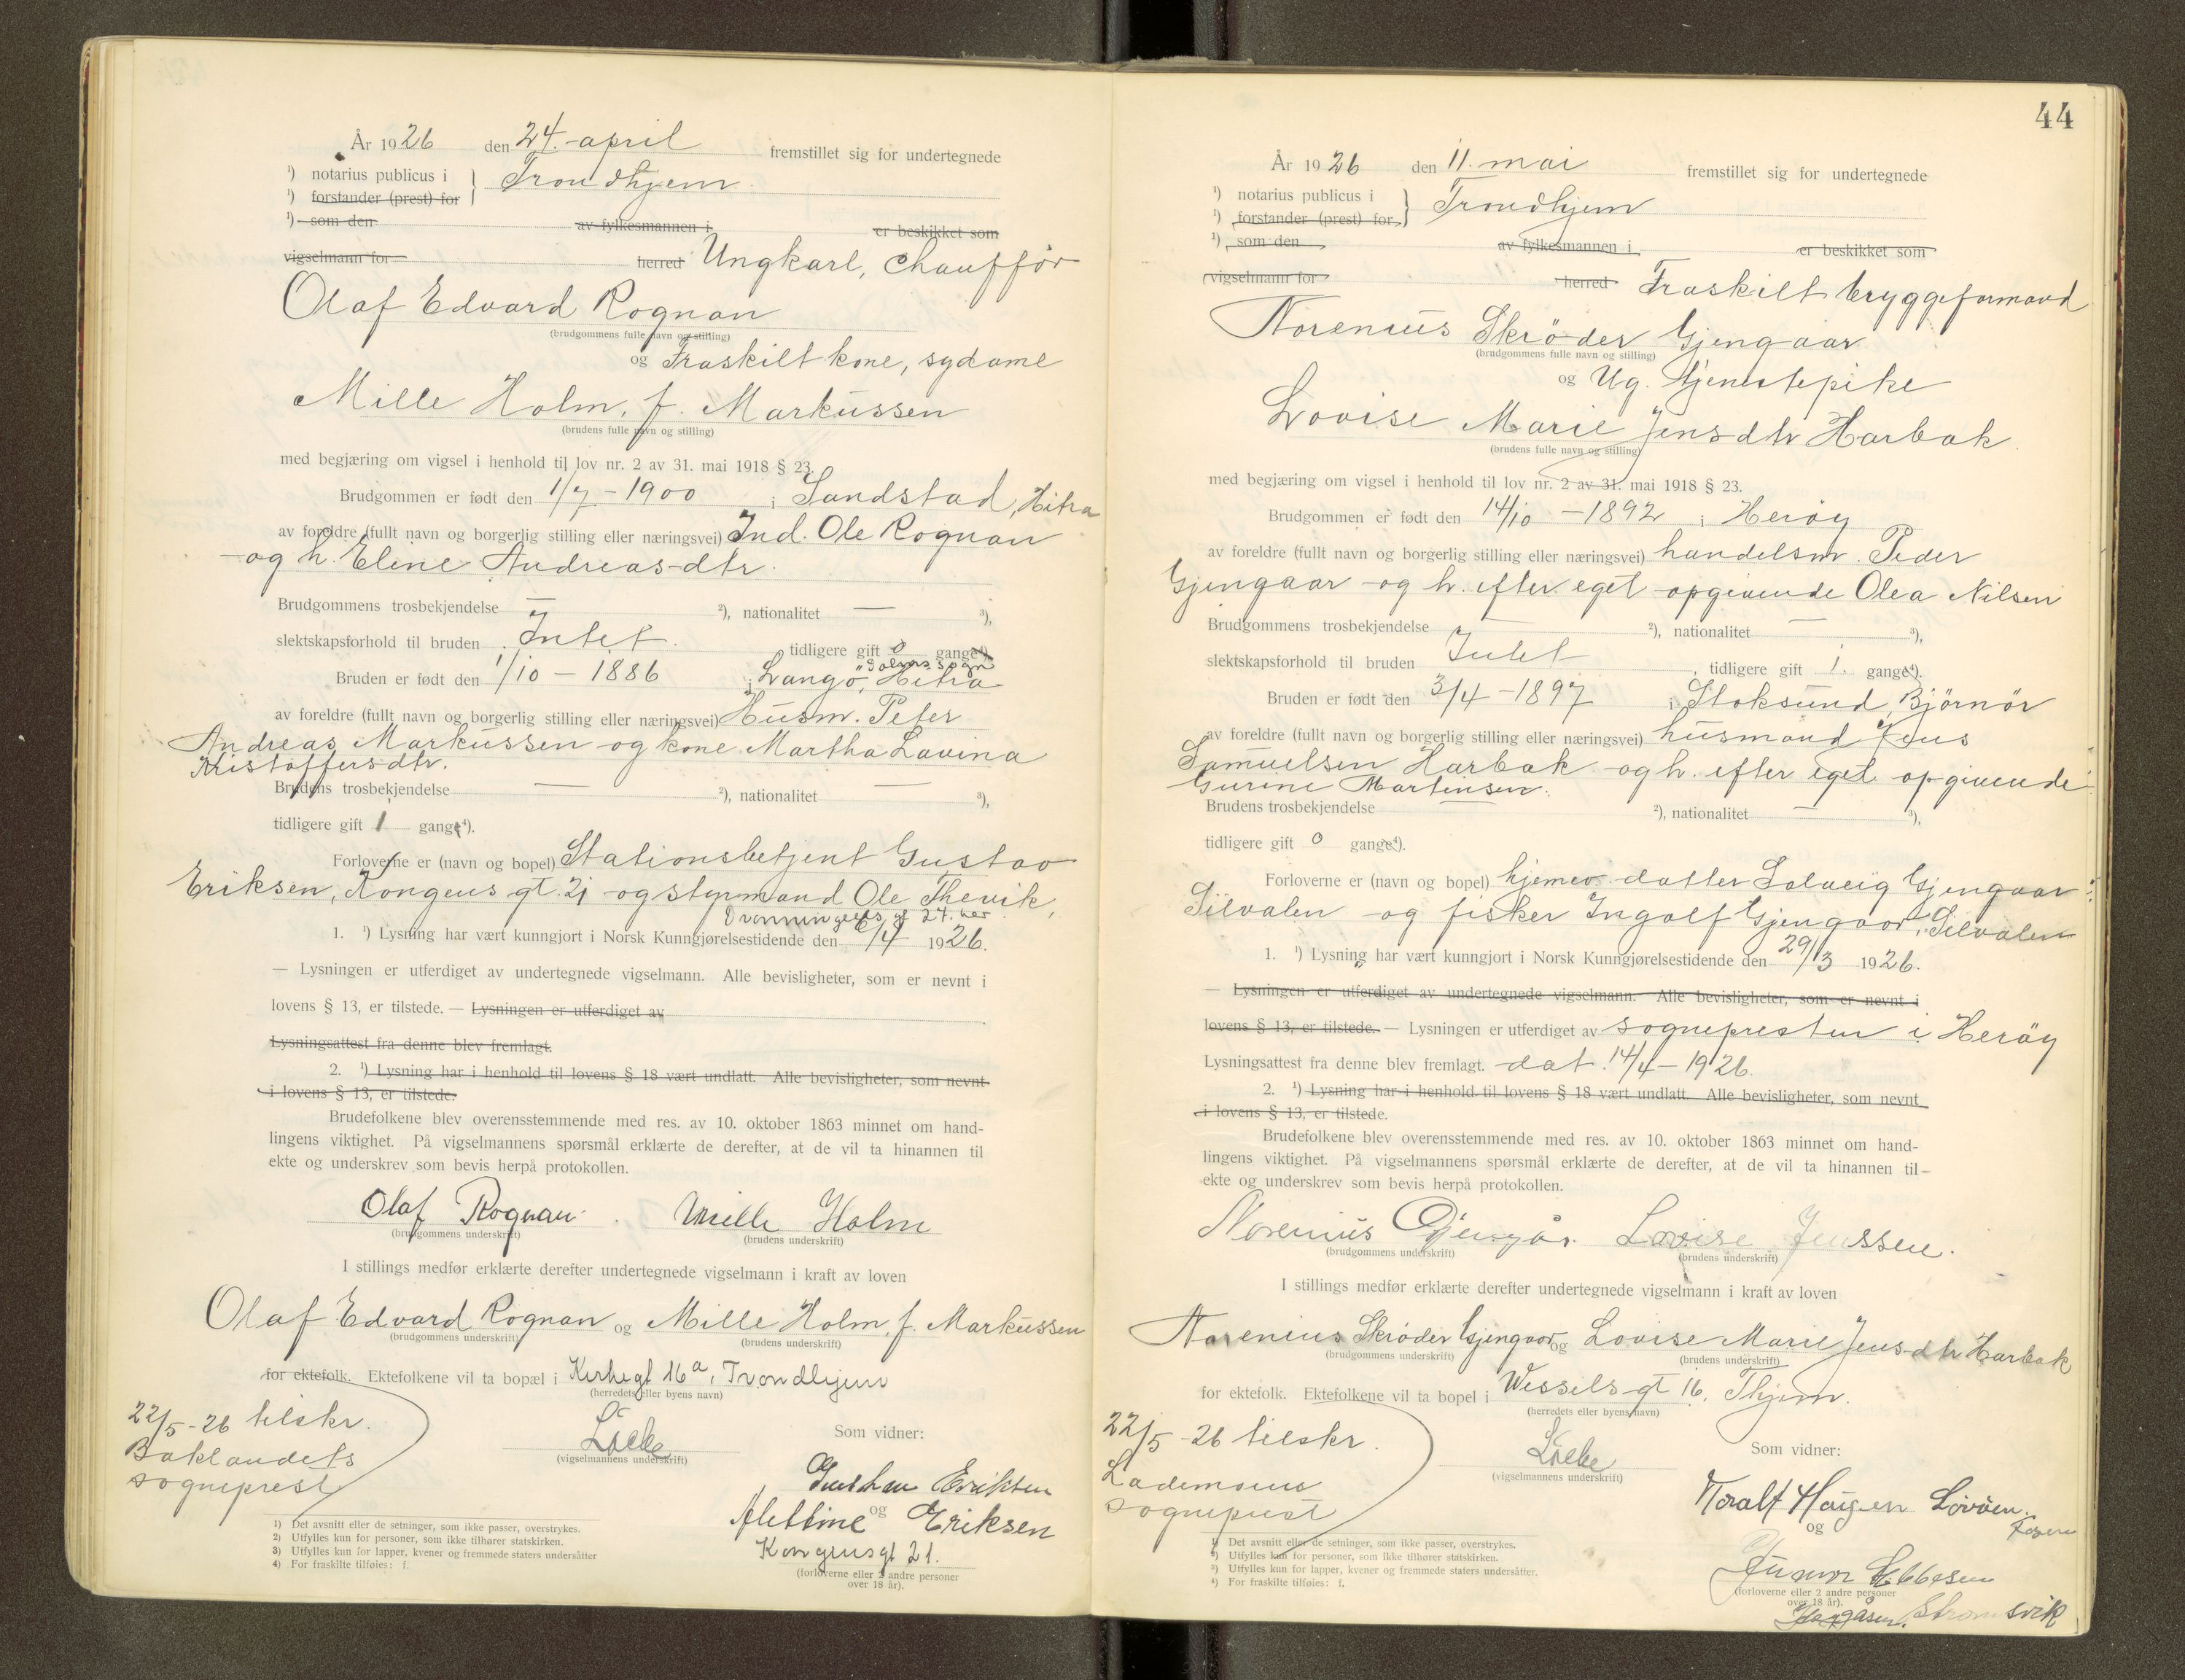 År 1926 den 24. april fremstillet sig for undertegnede
¹) notarius publicus i } Trondhjem
¹) forstander (prest) for
¹) som den av fylkesmannen i er beskikket som
vigselmann for herred Ungkarl, chauffør
Olaf Edvard Rognan
(brudgommens fulle navn og stilling)
og Fraskilt kone, sydame
Mille Holm, f. Markussen
(brudens fulle navn og stilling)
med begjæring om vigsel i henhold til lov nr. 2 av 31. mai 1918 § 23.
Brudgommen er født den 1/7 - 1900 i Sandstad, Hitra
av foreldre (fullt navn og borgerlig stilling eller næringsvei) Ind. Ole Rognan
og h. Eline Andreas-dtr.
Brudgommens trosbekjendelse — ²), nationalitet — ³),
slektskapsforhold til bruden Intet. tidligere gift 0 gange⁴).
Bruden er født den 1/10 - 1886 i Langø, Hitra
av foreldre (fullt navn og borgerlig stilling eller næringsvei) Husm. Peter
Andreas Markussen og kone Martha Lavina
Kristoffersdtr.
Brudens trosbekjendelse — ²), nationalitet — ³),
tidligere gift 1 gange⁴).
Forloverne er (navn og bopel) Stationsbetjent Gustav
Eriksen, Kongens gt. 21 og styrmand Ole Thevik,
Dronningens gt 27. her
1. ¹) Lysning har vært kunngjort i Norsk Kunngjørelsestidende den 6/4 1926.
— Lysningen er utferdiget av undertegnede vigselmann. Alle bevisligheter, som er nevnt i
lovens § 13, er tilstede. — Lysningen er utferdiget av
Lysningsattest fra denne blev fremlagt.
2. ¹) Lysning har i henhold til lovens § 18 vært undlatt. Alle bevisligheter, som nevnt
i lovens § 13, er tilstede.
Brudefolkene blev overensstemmende med res. av 10. oktober 1863 minnet om hand-
lingens viktighet. På vigselmannens spørsmål erklærte de derefter, at de vil ta hinannen til
ekte og underskrev som bevis herpå protokollen.
Olaf Rognan. Mille Holm
(brudgommens underskrift) (brudens underskrift)
I stillings medfør erklærte derefter undertegnede vigselmann i kraft av loven
Olaf Edvard Rognan og Mille Holm, f. Markussen
(brudgommens underskrift) (brudens underskrift)
for ektefolk. Ektefolkene vil ta bopæl i Kirkegt 16a, Trondhjem
(herredets eller byens navn)
22/5 - 26 tilskr.
Baklandets
sogneprest
(vigselmannens underskrift)
Som vidner:
Gustav Eriksen
og
Alettine Eriksen
Kongensgt 21.
(forloverne eller 2 andre personer
over 18 år).
1) Det avsnitt eller de setninger, som ikke passer, overstrykes.
2) Utfylles kun for personer, som ikke tilhører statskirken.
3) Utfylles kun for lapper, kvener og fremmede staters undersåtter
4) For fraskilte tilføies: f.
44
År 1926 den 11. mai fremstillet sig for undertegnede
¹) notarius publicus i } Trondhjem
¹) forstander (prest) for
¹) som den av fylkesmannen i er beskikket som
vigselmann for herred Fraskilt bryggeformand
Norenius Skrøder Gjengaar
(brudgommens fulle navn og stilling)
og Ug. tjenestepike
Lovise Marie Jensdtr Harbak
(brudens fulle navn og stilling)
med begjæring om vigsel i henhold til lov nr. 2 av 31. mai 1918 § 23.
Brudgommen er født den 14/10 - 1892 i Herøy
av foreldre (fullt navn og borgerlig stilling eller næringsvei) handelsm. Peder
Gjengaar og h. efter eget opgivende Olea Nilsen
Brudgommens trosbekjendelse — ²), nationalitet — ³),
slektskapsforhold til bruden Intet, tidligere gift 1. gange⁴).
Bruden er født den 3/4 - 1897 i Stoksund, Bjørnør
av foreldre (fullt navn og borgerlig stilling eller næringsvei) husmand Jens
Samuelsen Harbak og h. efter eget opgivende
Gurine Martinsen.
Brudens trosbekjendelse ²), nationalitet — ³),
tidligere gift 0 gange⁴).
Forloverne er (navn og bopel) hjemev. datter Solveig Gjengaar
Silvalen og fisker Ingolf Gjengaar, Silvalen
1. ¹) Lysning har vært kunngjort i Norsk Kunngjørelsestidende den 29/3 1926.
— Lysningen er utferdiget av undertegnede vigselmann. Alle bevisligheter, som er nevnt i
lovens § 13, er tilstede. — Lysningen er utferdiget av sognepresten i Herøy
Lysningsattest fra denne blev fremlagt. dat. 14/4 - 1926.
2. ¹) Lysning har i henhold til lovens § 18 vært undlatt. Alle bevisligheter, som nevnt
i lovens § 13, er tilstede.
Brudefolkene blev overensstemmende med res. av 10. oktober 1863 minnet om hand-
lingens viktighet. På vigselmannens spørsmål erklærte de derefter, at de vil ta hinannen til
ekte og underskrev som bevis herpå protokollen.
Norenius Gjengår. Lovise Jenssen.
(brudgommens underskrift) (brudens underskrift)
I stillings medfør erklærte derefter undertegnede vigselmann i kraft av loven
Norenius Skrøder Gjengaar og Lovise Marie Jens-dtr Harbak
(brudgommens underskrift) (brudens underskrift)
for ektefolk. Ektefolkene vil ta bopel i Wessels gt 16. Thjem.
(herredets eller byens navn)
22/5 - 26 tilskr.
Lademoens
sogneprest
(vigselmannens underskrift)
Som vidner:
Toralf Haugen
og
(forloverne eller 2 andre personer
over 18 år).
Strømsvik
¹) Det avsnitt eller de setninger, som ikke passer, overstrykes.
²) Utfylles kun for personer, som ikke tilhører statskirken.
³) Utfylles kun for lapper, kvener og fremmede staters undersåtter.
⁴) For fraskilte tilføies: f.